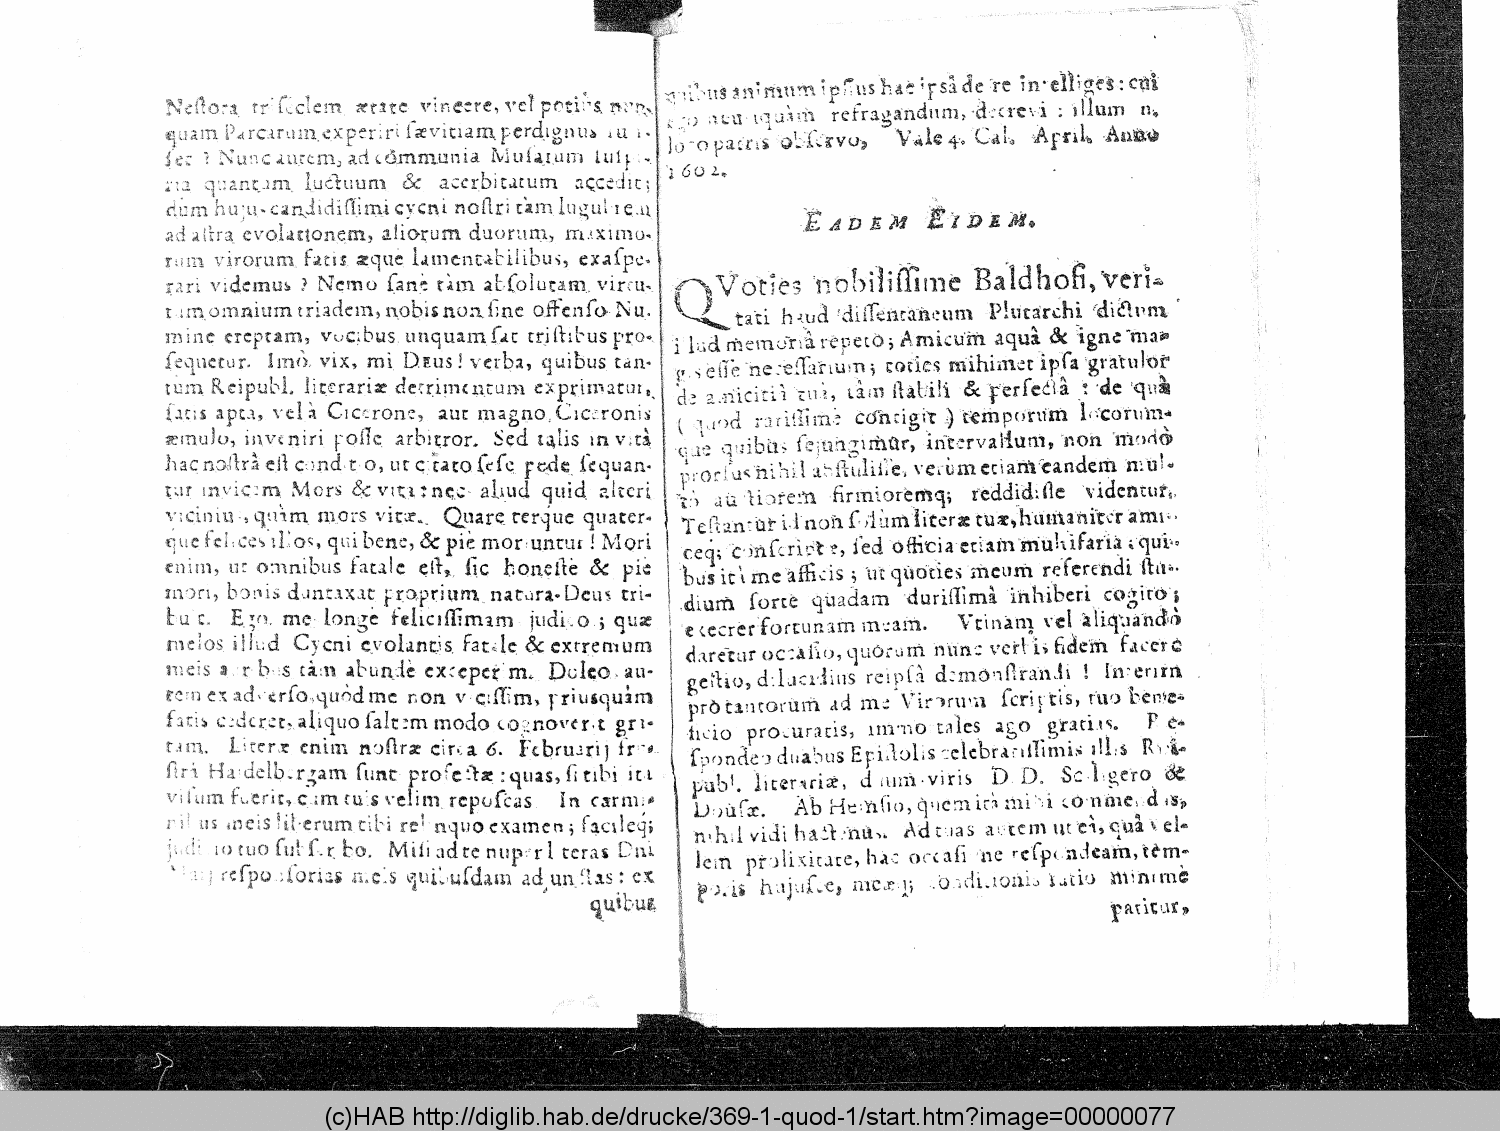 Neſtora triſeclem ætate vincere, vel potiùs nun-
quam Parcarum experiri ſævitiam perdignus fuiſ-
ſet ? Nunc autem, ad cõmmunia Muſarum ſuſpi-
ria quantum luctuum & acerbitatum accedit;
dùm huju- candidiſſimi cycni noſtri tàm lugubrem
ad aſtra evolationem, aliorum duorum, maximo-
rum virorum fatis æque lamentabilibus, exaſpe-
rari videmus ? Nemo ſanè tàm abſolutam virtu-
tum omnium triadem, nobis non ſine offenſo Nu-
mine ereptam, vocibus unquam ſat triſtibus pro-
ſequetur. Imò vix, mi Deus! verba, quibus tan-
tum Reipubl. literariæ detrimentum exprimatur,
ſatis apta, vel à Cicerone, aut magno Ciceronis
æmulo, inveniri poſſe arbitror. Sed talis in vità
hac noſtrâ eſt conditio, ut citato ſeſe pede ſequan-
tur invicem Mors & vita: nec aliud quid alteri
vicinius, quàm mors vitæ. Quare terque quater-
que felices illos, qui bene, & piè moriuntur! Mori
enim, ut omnibus fatale eſt, ſic honeſtè & piè
mori, bonis duntaxat proprium natura-Deus tri-
buit. Ego me longè feliciſſimam judico; quæ
melos illud Cycni evolantis fatale & extremum
meis auribus tàm abundè exceperim. Doleo au-
tem ex adverſo, quòd me non viciſſim, priusquàm
fatis cederet, aliquo ſaltem modo cognoverit gra-
tam. Literæ enim noſtræ circa 6. Februarij
Haidelbergam ſunt profectæ: quas, ſi tibi ita
viſum fuerit, cum tuis velim repoſcas In carmi-
nibus meis liberum tibi relinquo examen; facileq;
judicio tuo ſubſcribo. Miſi ad te nuper literas Dni
reſponſorias meis quibuſdam adjunctas: ex
quibus
quibus animum ipſius hac ipsâ de re intelliges: cui
ego nequaquàm refragandum, decrevi : illum n.
loco patris obſervo, Vale 4. Cal. April. Anno
1602.
EADEM EIDEM.
QVoties nobiliſſime Baldhofi, veri-
tati haud diſſentaneum Plutarchi dictum
illud memoriâ repeto; Amicum aquâ & igne ma-
gis eſſe neceſſarium; toties mihimet ipſa gratulor
de amicitiâ tuâ, tàm ſtabili & perfectâ : de quâ
( quod rariſſimè contigit ) temporum locorum-
que quibus ſejungimur, intervallum, non modò
prorſus nihil abſtuliſſe, verùm etiam eandem mul-
tò auctiorem firmioremq; reddidiſſe videntur.
Teſtantur id non ſolùm literæ tuæ, humaniter ami-
ceq; conſcriptæ, ſed officia etiam multifaria; qui-
bus ità me afficis; ut quoties meum referendi ſtu-
dium ſorte quadam duriſſimâ inhiberi cogito;
execrer fortunam meam. Vtinam vel aliquandò
daretur occaſio, quorum nunc verbis fidem facere
geſtio, dilucidius reipſâ demonſtrandi ! Interim
prò tantorum ad me Virorum ſcriptis, tuo bene-
ficio procuratis, immo tales ago gratias. Re-
ſpondeo duabus Epiſtolis celebratiſſimis illis Rei-
publ. literariæ, duum-viris D. D. Scaligero &
Douſæ. Ab Heinſio, quem ità mihi commendas,
nihil vidi hactenus. Ad tuas autem ut eì, quâ vel-
lem prolixitate, hac occaſione reſpondeam, tem-
poris hujuſce, meæq; conditionis ratio minimè
patitur,
(c)HAB http://diglib.hab.de/drucke/369-1-quod-1/start.htm?image=00000077